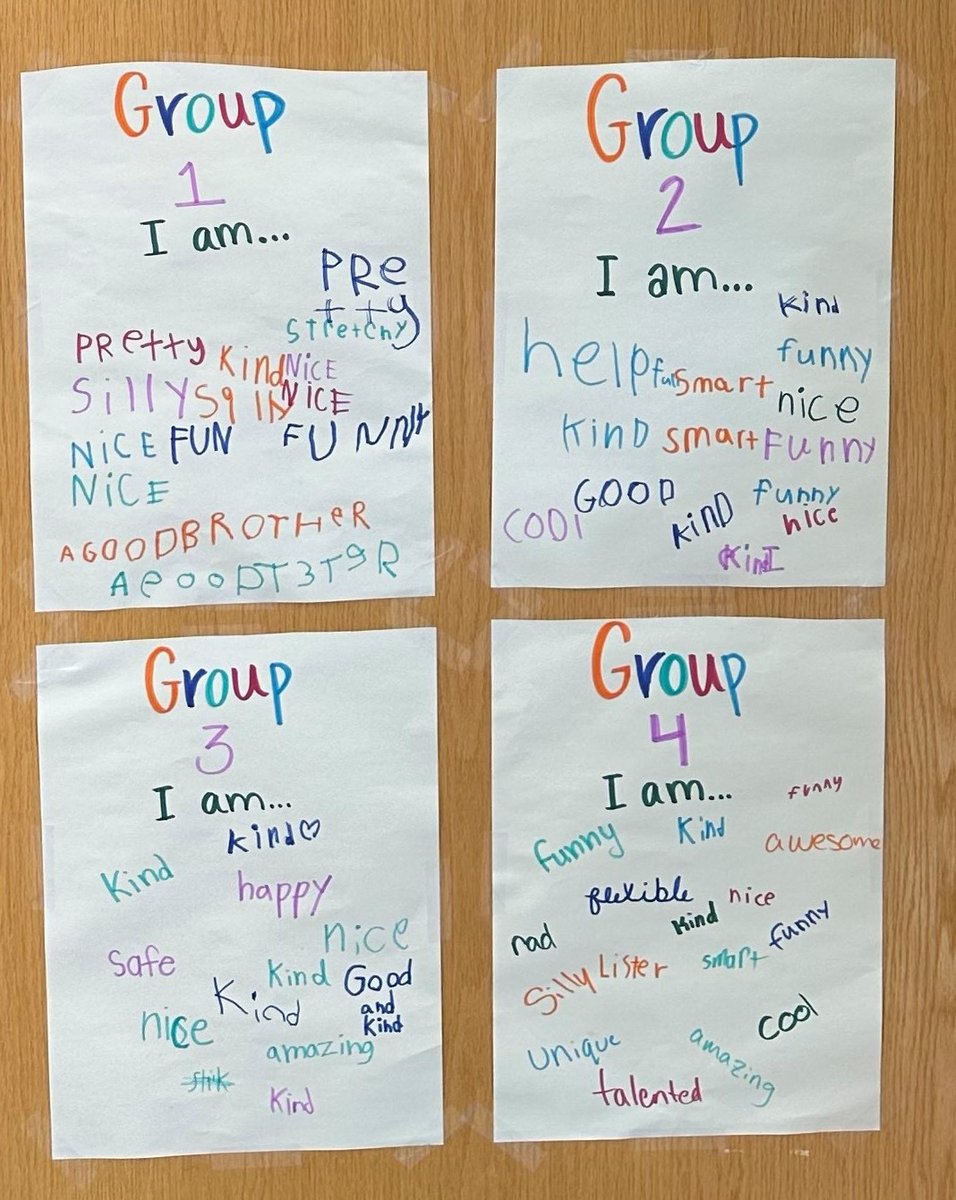 Group
1
I am...
PRe
tty
Stretchy
PRetty
Kind
NiCE
Silly
NiCE
NiCE
FUN
FUNNY
NiCE
AGOODBROTHeR
Group
2
I am...
Kind
helpful
funny
smart
nice
KinD
smart
Funny
GOOD
funny
COOl
KinD
nice
Group
3
I am...
kind♡
Kind
happy
nice
Safe
Kind
Good
and
Kind
Kind
nice
amazing
Kind
Group
4
I am...
funny
funny
Kind
awesome
flexible
nice
Kind
funny
rad
Silly
smart
cool
unique
amazing
talented